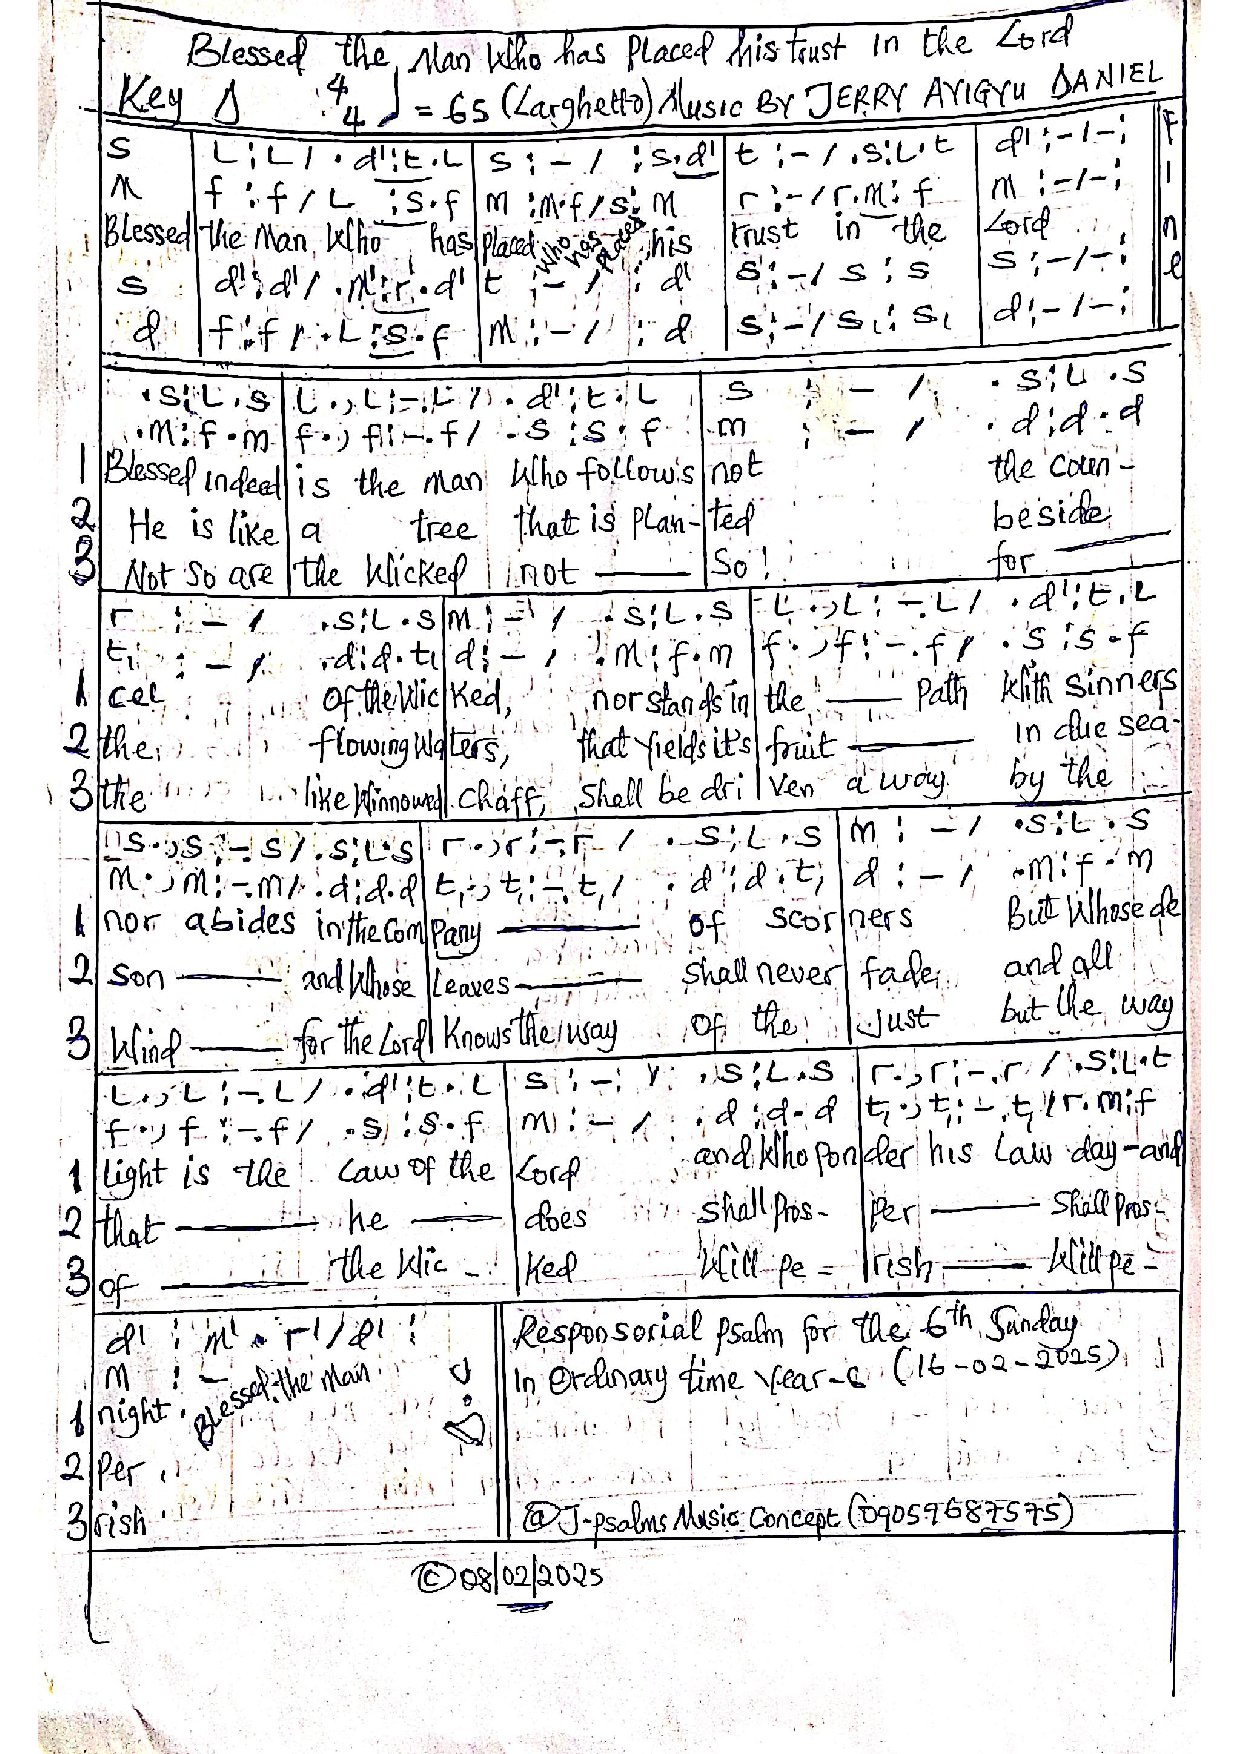 Blessed the Man Who has Placed his trust in the Lord
Key D 4/4 ♩ = 65 (Larghetto) Music BY JERRY AYIGYU DANIEL
s | L : L / . d' : t . L | s : – / : s . d' | t : – / . s : L . t | d' : – / – : | Fine
m | f : f / L : s . f | m : m . f / s : m | r : – / r . m : f | m : – / – :
Blessed | the Man Who has | placed who has placed his | trust in the | Lord
s | d' : d' / . m' : r' . d' | t : – / : d' | s : – / s : s | s : – / – :
d | f : f / . L : s . f | m : – / : d | s : – / s₁ : s₁ | d : – / – :
. s : L . s | L . , L : – . L / . d' : t . L | s : – / . s : L . s
. m : f . m | f . , f : – . f / . s : s . f | m : – / . d : d . d
1 Blessed indeed | is the man who follows | not the coun-
2 He is like | a tree that is plan- | ted beside
3 Not so are | the wicked not —— | so! for ——
r : – / . s : L . s | m : – / . s : L . s | L . , L : – . L / . d' : t . L
t₁ : – / . d : d . t₁ | d : – / . m : f . m | f . , f : – . f / . s : s . f
1 cel of the wic | ked, nor stands in | the —— path with sinners
2 the flowing wa | ters, that yields it's | fruit —— in due sea-
3 the like winnowed | chaff, shall be dri | ven away by the
s . , s : – . s / . s : L . s | r . , r : – . r / . s : L . s | m : – / . s : L . s
m . , m : – . m / . d : d . d | t₁ . , t₁ : – . t₁ / . d : d . t₁ | d : – / . m : f . m
1 nor abides in the com | pany —— of scor | ners But whose de
2 son —— and whose | leaves —— shall never | fade, and all
3 wind —— for the Lord | knows the way of the | just but the way
L . , L : – . L / . d' : t . L | s : – : / . s : L . s | r . , r : – . r / . s : L . t
f . , f : – . f / . s : s . f | m : – / . d : d . d | t₁ . , t₁ : – . t₁ / r . m : f
1 light is the law of the | Lord and who pon | der his law day-and
2 that —— he —— | does shall pros- | per —— shall pros-
3 of —— the wic- | ked will pe- | rish —— will pe-
d' : m' . r' / d' :
m : –
1 night. Blessed the man
2 Per.
3 rish
Responsorial psalm for the 6th Sunday
In Ordinary time Year-C (16-02-2025)
@J-psalms Music Concept (09059687575)
© 08/02/2025